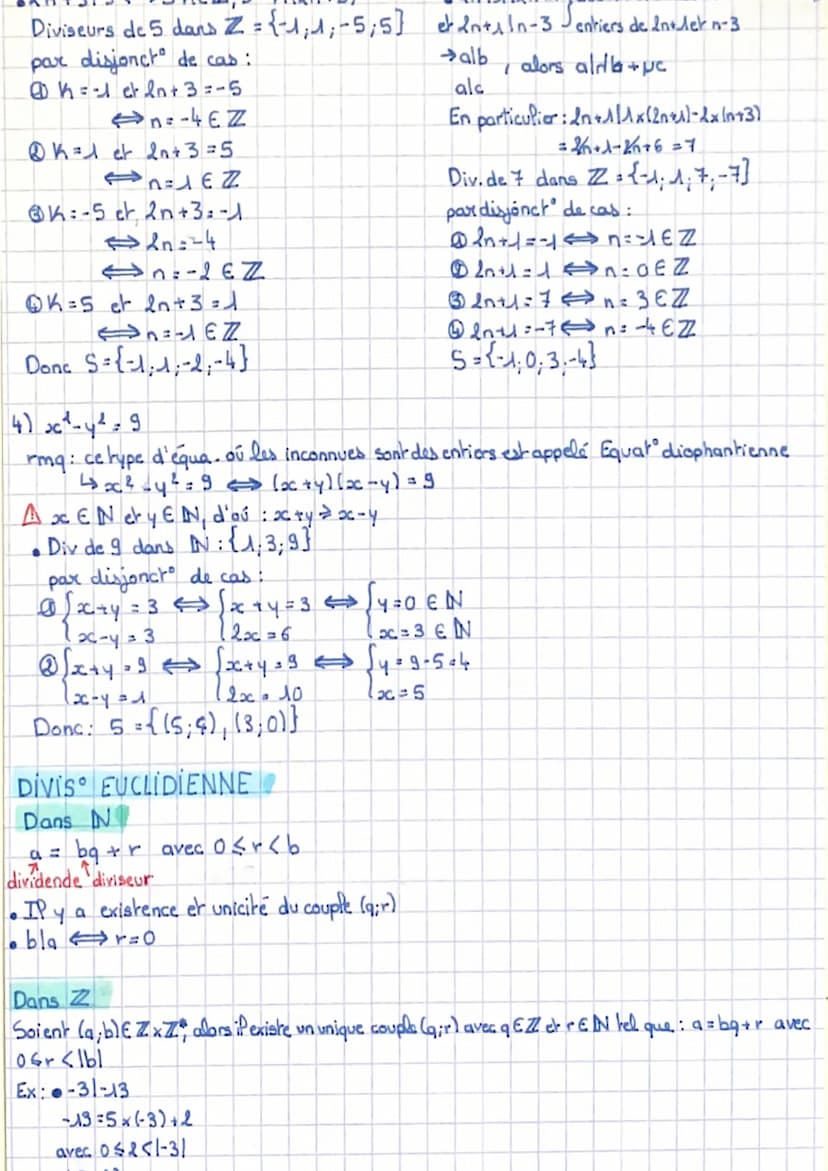 Diviseurs de 5 dans ℤ = {-1; 1; -5; 5}
par disjonct° de cas :
① K = -1 et 2n+3 = -5
⟺ n = -4 ∈ ℤ
② K = 1 et 2n+3 = 5
⟺ n = 1 ∈ ℤ
③ K = -5 et 2n+3 = -1
⟺ 2n = -4
⟺ n = -2 ∈ ℤ
④ K = 5 et 2n+3 = 1
⟺ n = -1 ∈ ℤ
Donc S = {-1; 1; -2; -4}
et 2n+1|n-3 entiers de 2n+1 et n-3
→ a|b
, alors a|λb + μc
a|c
En particulier : 2n+1|1×(2n+1)-2×(n+3)
= 2n+1-2n+6 = 7
Div. de 7 dans ℤ = {-1; 1; 7; -7}
par disjonct° de cas :
① 2n+1 = -1 ⟺ n = -1 ∈ ℤ
② 2n+1 = 1 ⟺ n = 0 ∈ ℤ
③ 2n+1 = 7 ⟺ n = 3 ∈ ℤ
④ 2n+1 = -7 ⟺ n = -4 ∈ ℤ
S = {-1; 0; 3; -4}
4) x² - y² = 9
rmq : ce type d'équa. où les inconnues sont des entiers est appelé Equat° diophantienne
↳ x² - y² = 9 ⟺ (x+y)(x-y) = 9
⚠ x ∈ ℕ et y ∈ ℕ, d'où : x+y ⩾ x-y
• Div de 9 dans ℕ : {1; 3; 9}
par disjonct° de cas :
① { x+y = 3 ⟺ { x+y = 3 ⟺ { y = 0 ∈ ℕ
x-y = 3 2x = 6 x = 3 ∈ ℕ
② { x+y = 9 ⟺ { x+y = 9 ⟺ { y = 9-5 = 4
x-y = 1 2x = 10 x = 5
Donc : S = {(5;4), (3;0)}
DIVIS° EUCLIDIENNE
Dans ℕ
a = bq + r avec 0 ⩽ r < b
dividende diviseur
• Il y a existence et unicité du couple (q;r)
• b|a ⟺ r = 0
Dans ℤ
Soient (a;b) ∈ ℤ×ℤ*, alors il existe un unique couple (q;r) avec q ∈ ℤ et r ∈ ℕ tel que : a = bq + r avec
0 ⩽ r < |b|
Ex : • -3|-13
-13 = 5×(-3)+2
avec 0 ⩽ 2 < |-3|